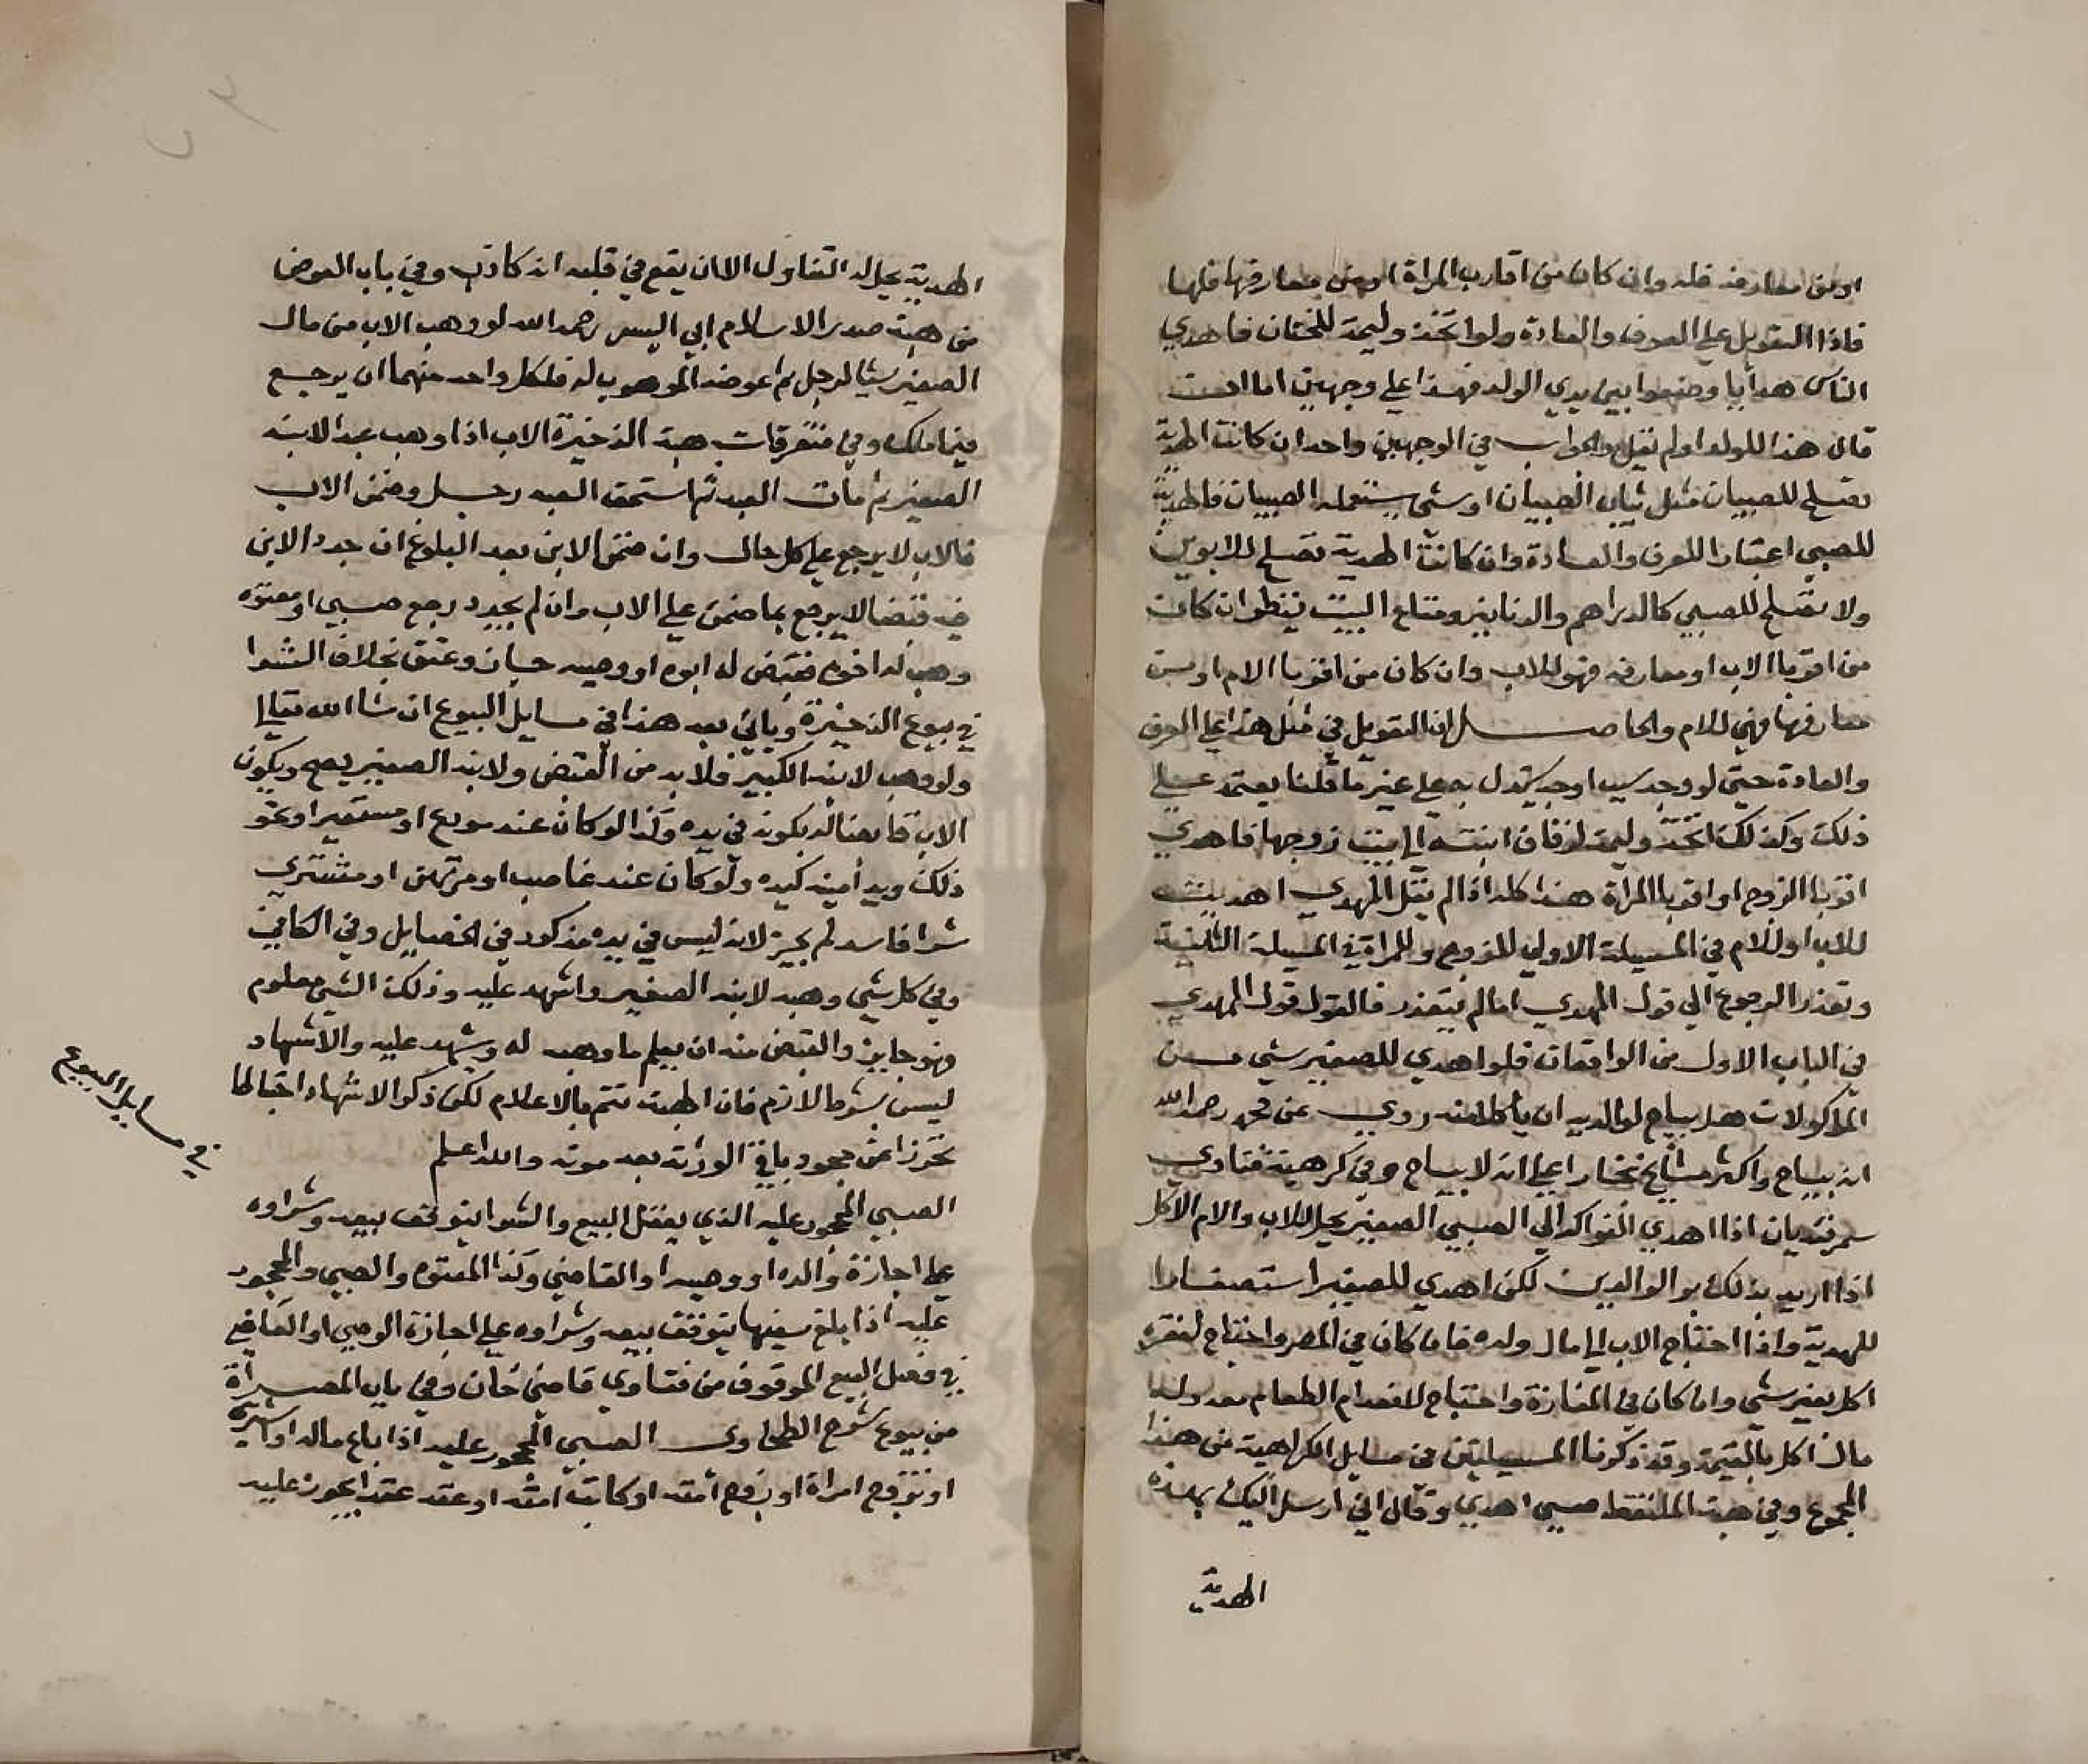 او من معارفه فله وان كان من اقارب المراة او من معارفها فلها
فاذا التعويل علي العرف والعادة ولو اتخذ وليمة للختان فاهدي
الناس هدايا ووضعوا بين يدي الولد فهذا علي وجهين اما ان
قال هذا للولد او لم يقل والجواب في الوجهين واحد ان كانت الهدية
تصلح للصبيان مثل ثياب الصبيان او شي يستعمله الصبيان فالهدية
للصبي اعتبارا للعرف والعادة وان كانت الهدية تصلح للابوين
ولا تصلح للصبي كالدراهم والدنانير ومتاع البيت ينظر ان كان
من اقربا الاب او معارفه فهو للاب وان كان من اقربا الام او من
معارفها فهي للام والحاصل ان التعويل في مثل هذا علي العرف
والعادة حتي لو وجد سبب او وجه يستدل به علي غير ما قلنا يعتمد علي
ذلك وكذلك اتخذ وليمة لزفاف ابنته الي بيت زوجها فاهدي
اقربا الزوج او اقربا المراة هذا كله اذا لم يقل المهدي اهديت
للاب او للام في المسيلة الاولي للزوج وللمراة في المسيلة الثانية
وتعذر الرجوع الي قول المهدي اما لم يتعذر فالقول قول المهدي
في الباب الاول من الواقعات فلو اهدي للصغير شي من
الماكولات هل يباح لوالديه ان ياكلا منه روي عن محمد رحمه الله
انه يباح واكثر مشايخ بخارا علي انه لا يباح وفي كرهية فتاوي
سمرقنديان اذا اهدي الفواكه الي الصبي الصغير يحل للاب والام الاكل
اذا اريد بذلك بر الوالدين لكن اهدي للصغير استصغارا
للهدية واذا احتاج الاب الي مال ولده فان كان في المصر واحتاج لفقره
اكل بغير شي وان كان في المفازة واحتاج لانعدام الطعام معه وله
مال اكل بالقيمة وقد ذكرنا المسيلتين في مسايل الكراهية من هذا
المجموع وفي هبة الملتقط صبي اهدي وقال ابي ارسل اليك بهذه
الهدية
الهدية يحل له التناول الا ان يقع في قلبه انه كاذب وفي باب العوض
من هبة صدر الاسلام ابي اليسر رحمه الله لو وهب الاب من مال
الصغير شيا لرجل ثم اعوضه الموهوب له فلكل واحد منهما ان يرجع
فيما ملك وفي متفرقات هبة الذخيرة الاب اذا وهب عبد الابنه
الصغير ثم مات العبد ثم استحق العبد رجل وضمن الاب
فالاب لا يرجع علي كل حال وان ضمن الابن بعد البلوغ ان جدد الابن
فيه قبضا لا يرجع بما ضمن علي الاب وان لم يجدد رجع صبي او معتوه
وهب له اخوه فقبض له ابوه او وصيه جاز وعتق بخلاف الشرا
في بيوع الذخيرة وياتي بعد هذا في مسايل البيوع ان شا الله تعالي
ولو وهب لابنه الكبير فلا بد من القبض ولابنه الصغير يصح ويكون
الاب قابضا له بكونه في يده وكذا لو كان عند مودع او مستعير او نحو
ذلك ويد امينه كيده ولو كان عند غاصب او مرتهن او مشتري
شرا فاسد لم يجز لانه ليس في يده مذكور في الخصايل وفي الكافي
وفي كل شي وهبه لابنه الصغير واشهد عليه وذلك الشي معلوم
فهو جايز والقبض منه ان يعلم ما وهبه له ويشهد عليه والاشهاد
ليس بشرط لازم فان الهبة تتم بالاعلام لكن ذكر الاشهاد احتياطا
تحرزا عن جحود باقي الورثة بعد موته والله اعلم
في مسايل البيوع
الصبي المحجور عليه الذي يعقل البيع والشرا يتوقف بيعه وشراوه
علي اجازة والده او وصيه او القاضي وكذا المعتوه والصبي والمحجور
عليه اذا بلغ سفيها يتوقف بيعه وشراوه علي اجازة الوصي او القاضي
في فصل البيع الموقوف من فتاوي قاضي خان وفي باب المصراة
من بيوع شرح الطحاوي الصبي المحجور عليه اذا باع ماله او اشتري
او تزوج امراة او زوج امته او كاتب امته او عقد عقدا يجوز عليه